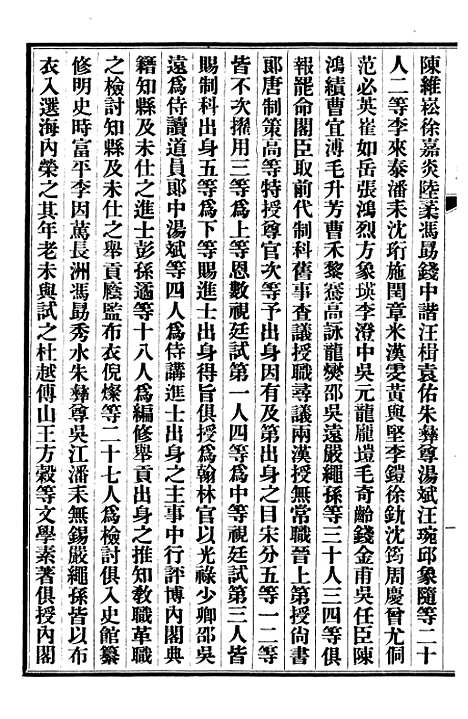 陳維崧徐嘉炎陸葇馮勗錢中諧汪楫袁佑朱彝尊湯斌汪琬邱象隨等二十
人二等李來泰潘耒沈珩施閏章米漢雯黃與堅李鎧徐釚沈筠周慶曾尤侗
范必英崔如岳張鴻烈方象瑛李澄中吳元龍龐塏毛奇齡錢金甫吳任臣陳
鴻績曹宜溥毛升芳曹禾黎騫高詠龍燮邵吳遠嚴繩孫等三十人三四等俱
報罷命閣臣取前代制科舊事查議授職尋議兩漢授無常職晉上第授尙書
郞唐制策高等特授尊官次等予出身因有及第出身之目宋分五等一二等
皆不次擢用三等爲上等恩數視廷試第一人四等爲中等視廷試第三人皆
賜制科出身五等爲下等賜進士出身得旨俱授爲翰林官以光祿少卿邵吳
遠爲侍讀道員郞中湯斌等四人爲侍講進士出身之主事中行評博內閣典
籍知縣及未仕之進士彭孫遹等十八人爲編修舉貢出身之推知敎職革職
之檢討知縣及未仕之舉貢廕監布衣倪燦等二十七人爲檢討俱入史館纂
修明史時富平李因萬長洲馮勗秀水朱彝尊吳江潘耒無錫嚴繩孫皆以布
衣入選海內榮之其年老未與試之杜越傅山王方穀等文學素著俱授內閣